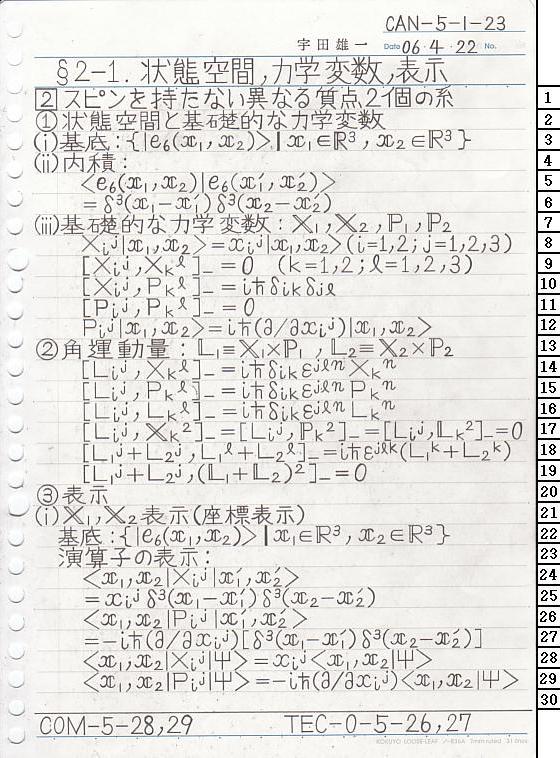 CAN-5-1-23
宇田雄一 Date 06・4・22 No.
§2-1. 状態空間,力学変数,表示
2 スピンを持たない異なる質点2個の系 1
①状態空間と基礎的な力学変数 2
(i)基底:{|e₆(x₁,x₂)>|x₁∈ℝ³,x₂∈ℝ³} 3
(ii)内積: 4
<e₆(x₁,x₂)|e₆(x₁′,x₂′)> 5
=δ³(x₁-x₁′)δ³(x₂-x₂′) 6
(iii)基礎的な力学変数:𝕏₁,𝕏₂,ℙ₁,ℙ₂ 7
Xᵢʲ|x₁,x₂>=xᵢʲ|x₁,x₂>(i=1,2;j=1,2,3) 8
[Xᵢʲ,Xₖˡ]₋=0 (k=1,2;ℓ=1,2,3) 9
[Xᵢʲ,Pₖˡ]₋=iħδᵢₖδⱼₗ 10
[Pᵢʲ,Pₖˡ]₋=0 11
Pᵢʲ|x₁,x₂>=iħ(∂/∂xᵢʲ)|x₁,x₂> 12
②角運動量:𝕃₁≡𝕏₁×ℙ₁,𝕃₂≡𝕏₂×ℙ₂ 13
[Lᵢʲ,Xₖˡ]₋=iħδᵢₖεʲˡⁿXₖⁿ 14
[Lᵢʲ,Pₖˡ]₋=iħδᵢₖεʲˡⁿPₖⁿ 15
[Lᵢʲ,Lₖˡ]₋=iħδᵢₖεʲˡⁿLₖⁿ 16
[Lᵢʲ,𝕏ₖ²]₋=[Lᵢʲ,ℙₖ²]₋=[Lᵢʲ,𝕃ₖ²]₋=0 17
[L₁ʲ+L₂ʲ,L₁ˡ+L₂ˡ]₋=iħεʲˡᵏ(L₁ᵏ+L₂ᵏ) 18
[L₁ʲ+L₂ʲ,(𝕃₁+𝕃₂)²]₋=0 19
③表示 20
(i)𝕏₁,𝕏₂表示(座標表示) 21
基底:{|e₆(x₁,x₂)>|x₁∈ℝ³,x₂∈ℝ³} 22
演算子の表示: 23
<x₁,x₂|Xᵢʲ|x₁′,x₂′> 24
=xᵢʲδ³(x₁-x₁′)δ³(x₂-x₂′) 25
<x₁,x₂|Pᵢʲ|x₁′,x₂′> 26
=-iħ(∂/∂xᵢʲ)[δ³(x₁-x₁′)δ³(x₂-x₂′)] 27
<x₁,x₂|Xᵢʲ|Ψ>=xᵢʲ<x₁,x₂|Ψ> 28
<x₁,x₂|Pᵢʲ|Ψ>=-iħ(∂/∂xᵢʲ)<x₁,x₂|Ψ> 29
30
COM-5-28,29 TEC-0-5-26,27
KOKUYO LOOSE-LEAF ノ-836A 7mm ruled 31 lines